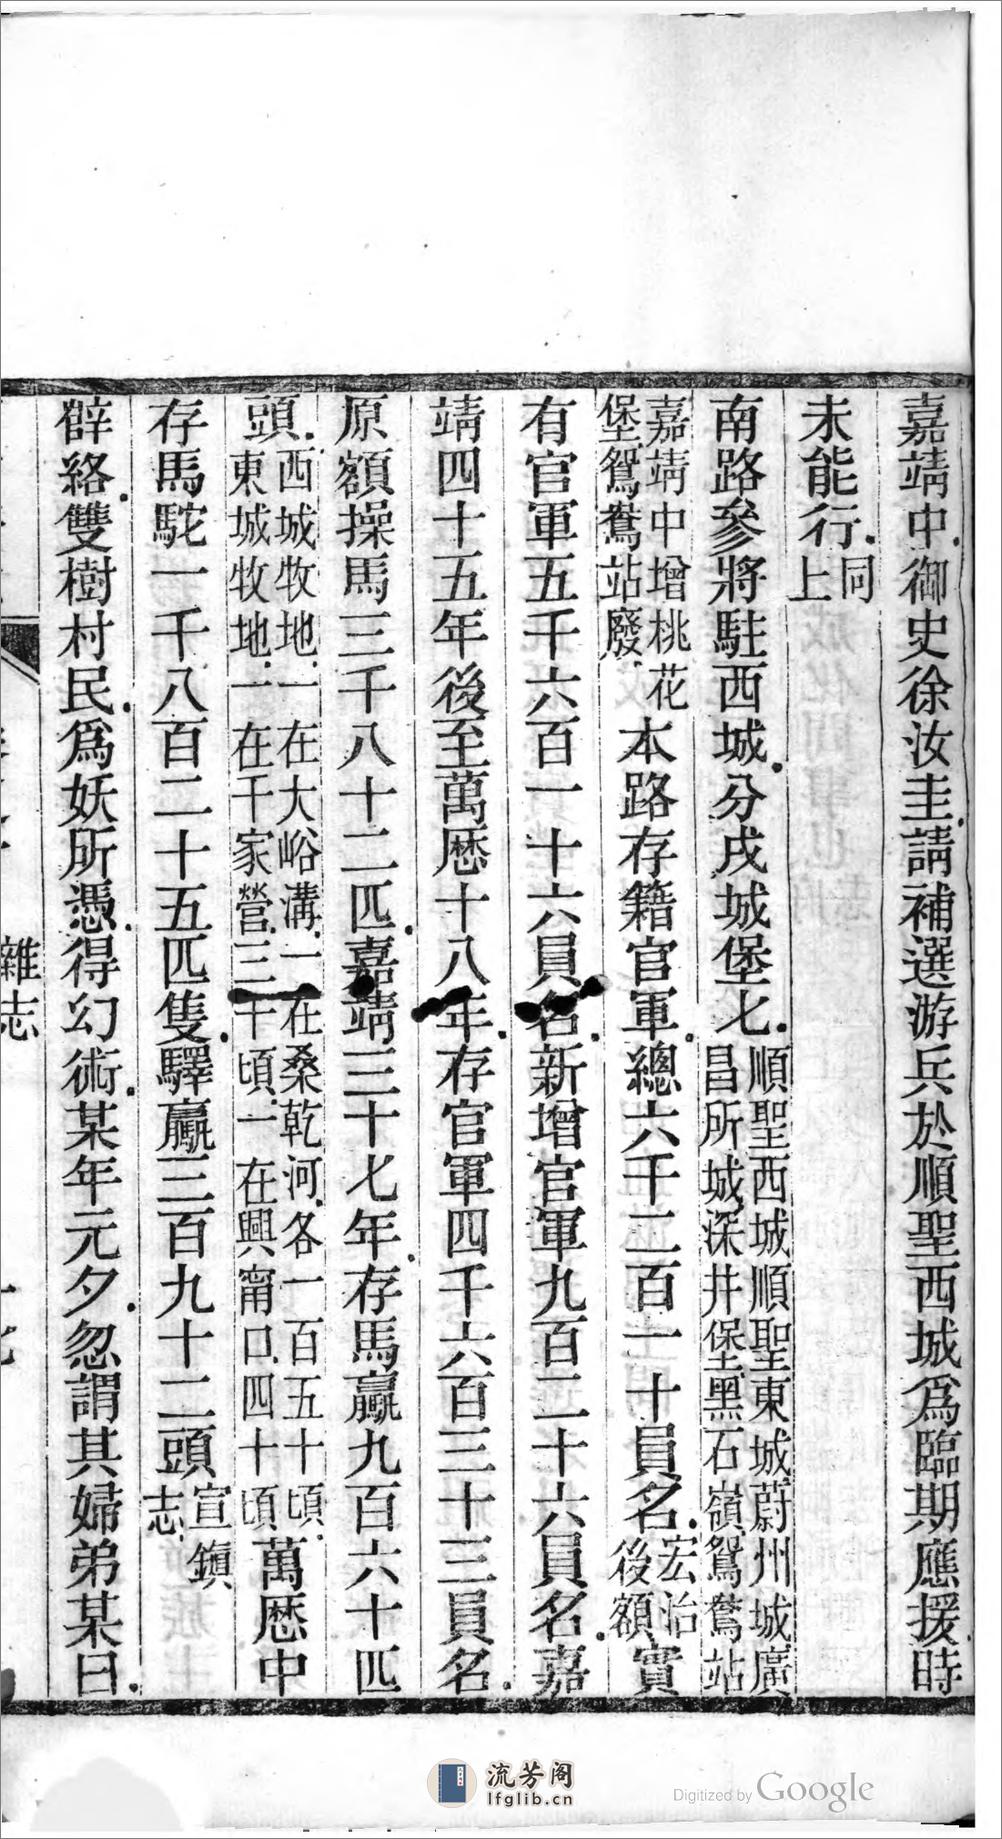 嘉靖中御史徐汝圭請補選游兵於順聖西城爲臨期應援時
未能行同上
南路參將駐西城分戍城堡七順聖西城順聖東城蔚州城廣昌所城深井堡黑石嶺鴛鴦站
嘉靖中增桃花堡鴛鴦站廢本路存籍官軍總六千二百一十員名宏治後額實
有官軍五千六百一十六員名新增官軍九百二十六員名嘉
靖四十五年後至萬厯十八年存官軍四千六百三十三員名
原額操馬三千八十二匹嘉靖三十七年存馬驘九百六十匹
頭西城牧地一在大峪溝一在桑乾河各一百五十頃東城牧地一在千家營三十頃一在興甯口四十頃萬厯中
存馬駝一千八百二十五匹隻驛驘三百九十二頭宣鎭志
辥絡雙樹村民爲妖所憑得幻術某年元夕忽謂其婦弟某曰
雜志
流芳阁
lfglib.cn
Digitized by Google